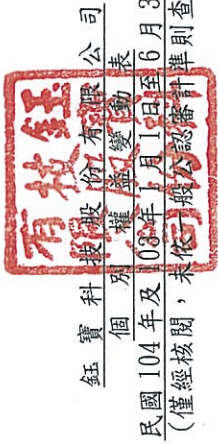 鈺寶科技股份有限公司
個別權益變動表
民國104年及103年1月1日至6月3
(僅經核閱，未依一般公認審計準則查